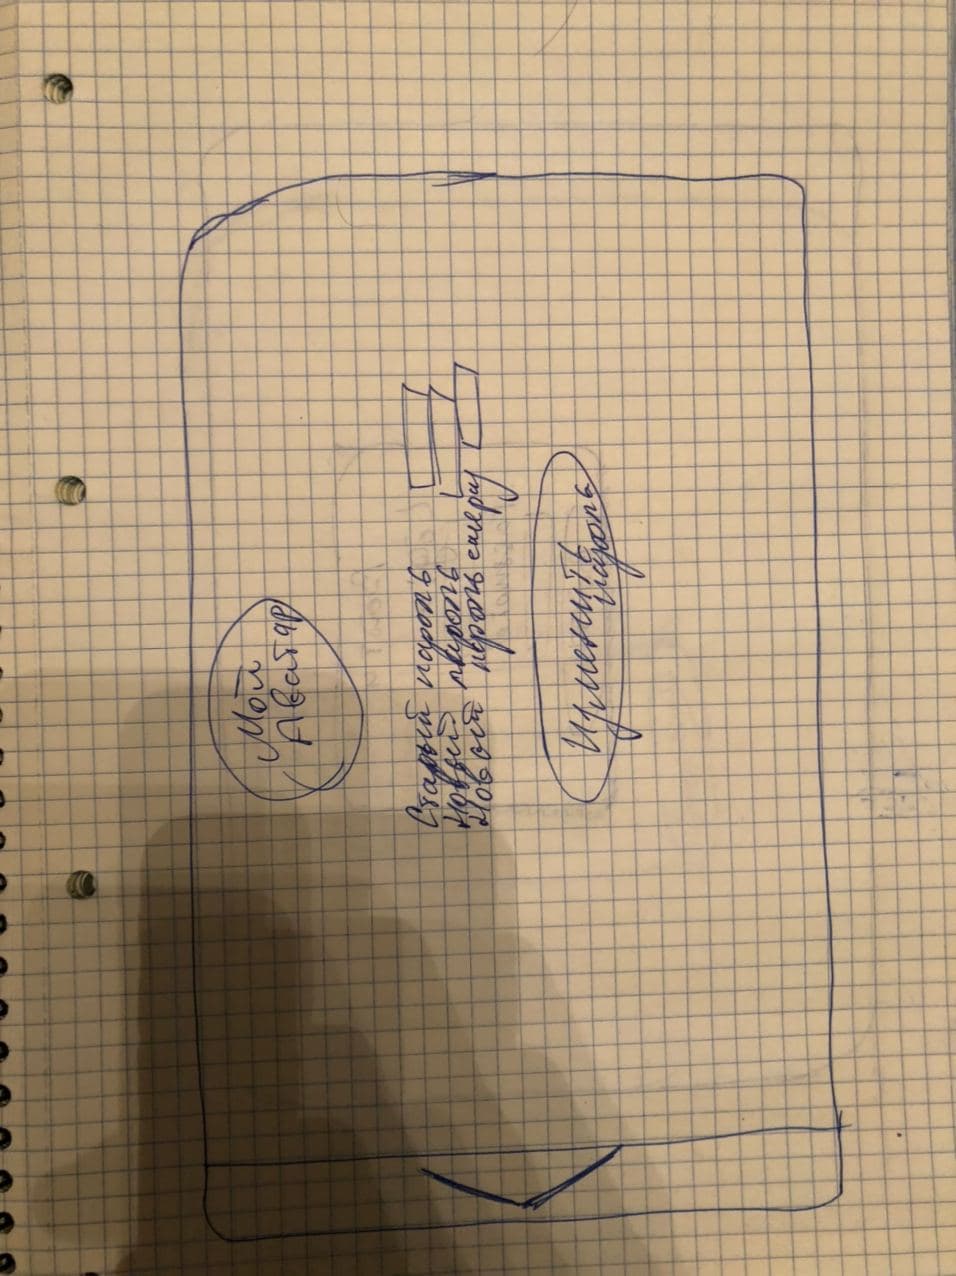 Мой
Аватар
Старый пароль
Новый пароль
Новый пароль ещё раз
Изменить
пароль